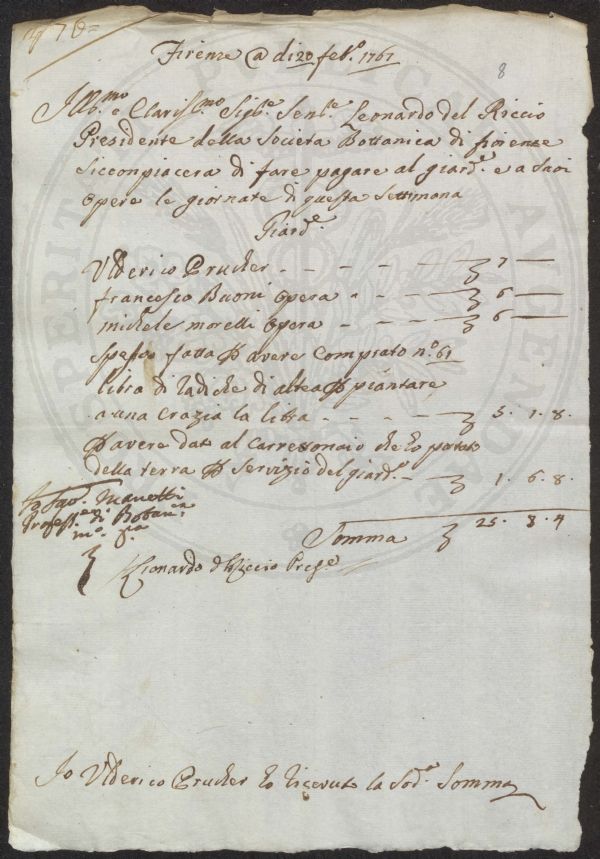 Firenze @ di 20 feb.º 1761
8
Ill.mo e Claris.mo Sig.e Sen.e Leonardo del Riccio
Presidente della Societa Bottanica di fiorenze
Siccompiacera di fare pagare al giard.e e a Suoi
Opere le giornate di questa Settimana
Giard.e
Ulderico Prucher - - - - 7 —
francesco Buoni Opera - - - 6 —
michele morelli Opera - - - 6 —
Spesa fatta p avere Comprato n.º 61
libra di radiche di altea p piantare
a una Crazia la libra - - - 5 . 1 . 8 .
p avere dato al Carretonaio che to portato
della terra p Servizio del giard.e - 1 . 6 . 8 .
Io Sav. Manetti
Profess.e di Botan.ca
m.o p.a
Somma 25 . 8 . 4
Lionardo del Riccio Presi.e
Io Ulderico Prucher to ricevuto la Sod.a Somma